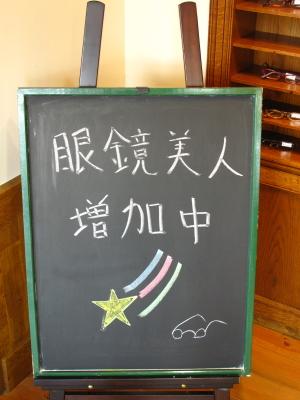 眼鏡美人
増加中